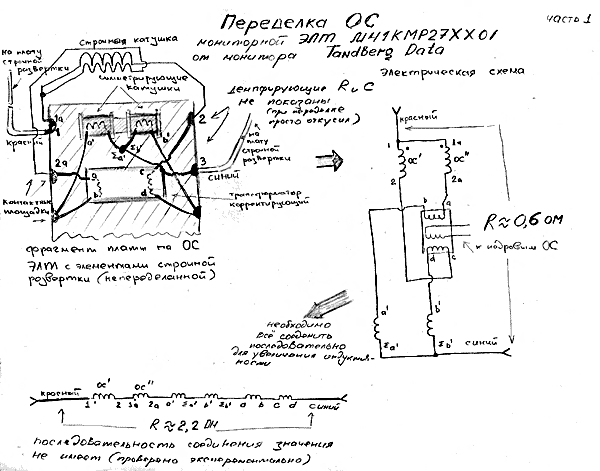 Переделка ОС
часть 1
мониторной ЭЛТ М41КМР27ХХ01
от монитора Tandberg Data
на плату
строчной
развертки
Строчная катушка
симетрирующие
катушки
демпфирующие R и C
не показаны
(при переделке
просто откусил)
Электрическая схема
красный
1а
2
а'
б'
Σа'
Σб'
2а
3
синий
на
плату
строчной
развертки
Контактные
площадки
a
b
c
d
трансформатор
корректирующий
фрагмент платы на ОС
ЭЛТ с элементами строчной
развертки (непеределанной)
красный
1
1а
ОС'
ОС"
2
2а
b
a
d
c
R≈0,6 ом
к кадровым ОС
а'
б'
Σа'
Σб'
синий
необходимо
всё соединить
последовательно
для увеличения индуктив-
ности
красный
ОС'
ОС"
1
2
1а
2а
а'
Σа'
б'
Σб'
a
b
c
d
синий
R≈2,2 Ом
последовательность соединения значения
не имеет (проверено эксперементально)